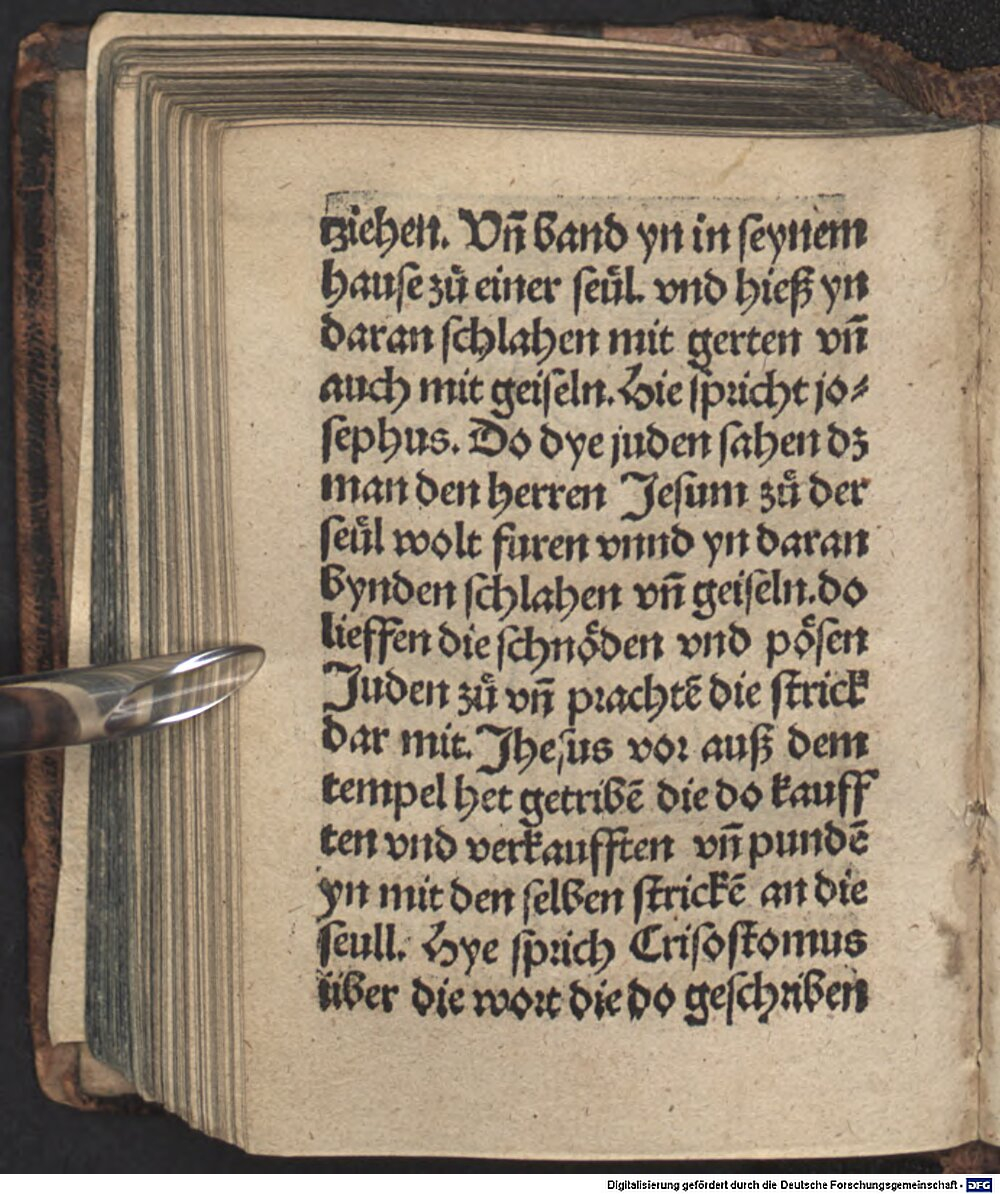 tziehen. Vn̄ band yn in ſeynem
hauſe zů einer ſeůl. vnd hieß yn
daran ſchlahen mit gerten vn̄
auch mit geiſeln. Hie ſpricht jo⸗
ſephus. Do dye juden ſahen dz
man den herren Jeſum zů der
ſeůl wolt furen vnnd yn daran
bynden ſchlahen vn̄ geiſeln. do
lieffen die ſchnoͤden vnd poͤſen
Juden zů vn̄ prachtē die ſtrick
dar mit. Jheſus vor auß dem
tempel het getribē die do kauff
ten vnd verkaufften vn̄ pundē
yn mit den ſelben ſtrickē an die
ſeull. Hye ſprich Criſoſtomus
über die wort die do geſchriben
Digitalisierung gefördert durch die Deutsche Forschungsgemeinschaft - DFG